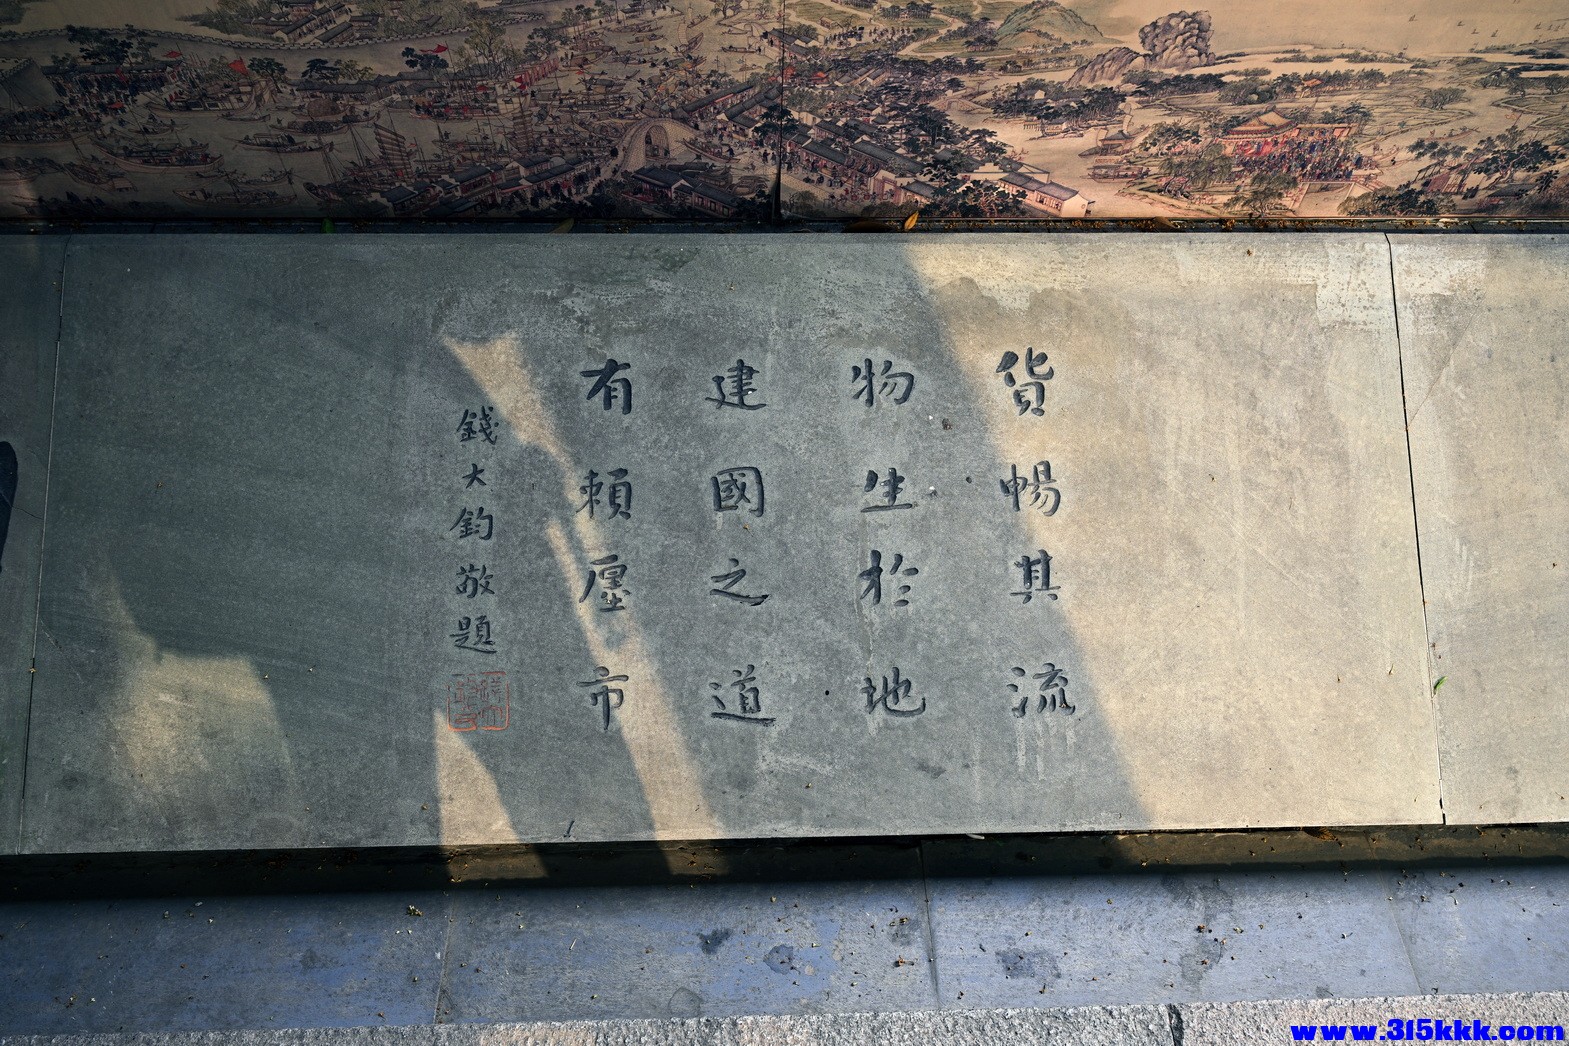 貨暢其流
物生於地
建國之道
有賴廛市
錢大鈞敬題
www.315kkk.com